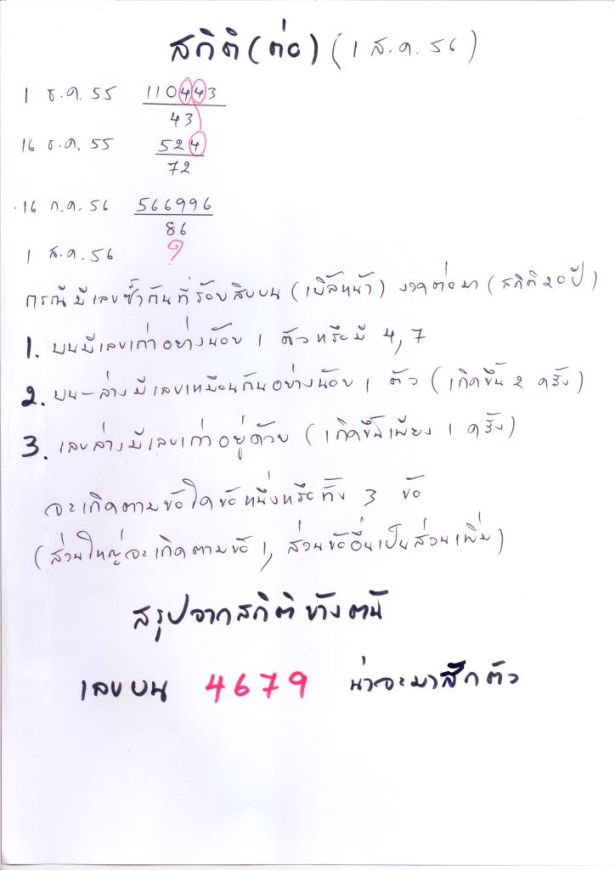 สถิติ(ต่อ) (1 ส.ค. 56)
1 ธ.ค. 55 110443
43
16 ธ.ค. 55 524
72
16 ก.ค. 56 566996
86
1 ส.ค. 56 ?
กรณีมีเลขซ้ำกันที่ร้อยสิบบน (เบิ้ลหน้า) งวดต่อมา (สถิติ 20 ปี)
1. บนมีเลขเก่าอย่างน้อย 1 ตัวหรือมี 4,7
2. บน-ล่างมีเลขเหมือนกันอย่างน้อย 1 ตัว (เกิดขึ้น 2 ครั้ง)
3. เลขล่างมีเลขเก่าอยู่ด้วย (เกิดขึ้นเพียง 1 ครั้ง)
จะเกิดตามข้อใดข้อหนึ่งหรือทั้ง 3 ข้อ
(ส่วนใหญ่จะเกิดตามข้อ 1, ส่วนข้ออื่นเป็นส่วนเพิ่ม)
สรุปจากสถิติข้างต้น
เลขบน 4679 น่าจะมาสักตัว